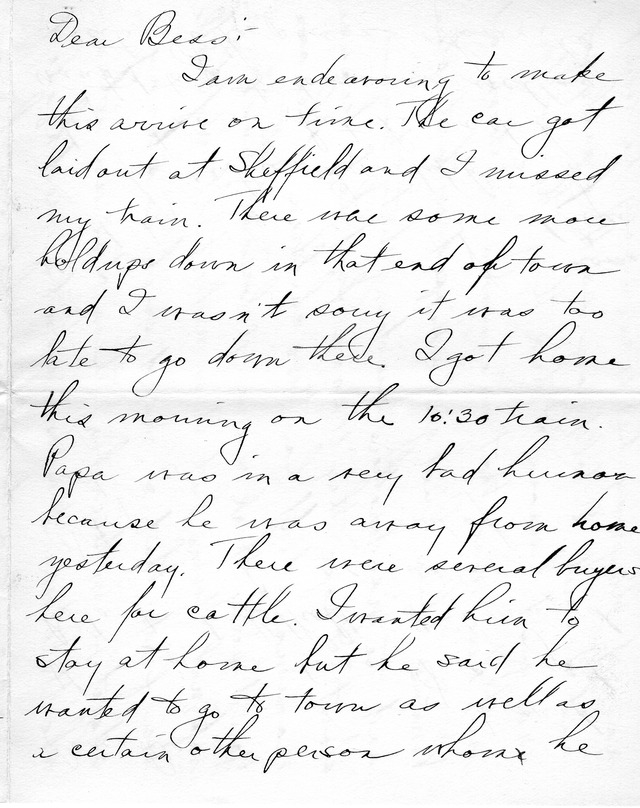 Dear Bess:-
I am endeavoring to make
this arrive on time. The car got
laid out at Sheffield and I missed
my train. There was some more
holdups down in that end of town
and I wasn't sorry it was too
late to go down there. I got home
this morning on the 10:30 train.
Papa was in a very bad humor
because he was away from home
yesterday. There were several buyers
here for cattle. I wanted him to
stay at home but he said he
wanted to go to town as well as
a certain other person whom he